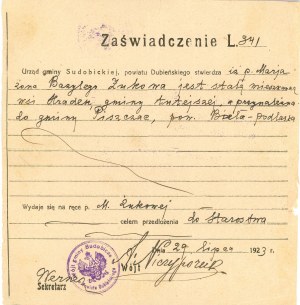 Zaświadczenie L. 341
Urząd gminy Sudobickiej, powiatu Dubieńskiego stwierdza iż p. Marja
żona Bazylego Żukowa jest stałą mieszk
wsi gminy tutejszej, a przynależna
do gminy Piszczac, pow. Biała-podlaska
Wydaje się na ręce p. M. Żukowej
celem przedłożenia do Starostwa
dnia 29 lipca 1923 r.
Wójt
Sekretarz